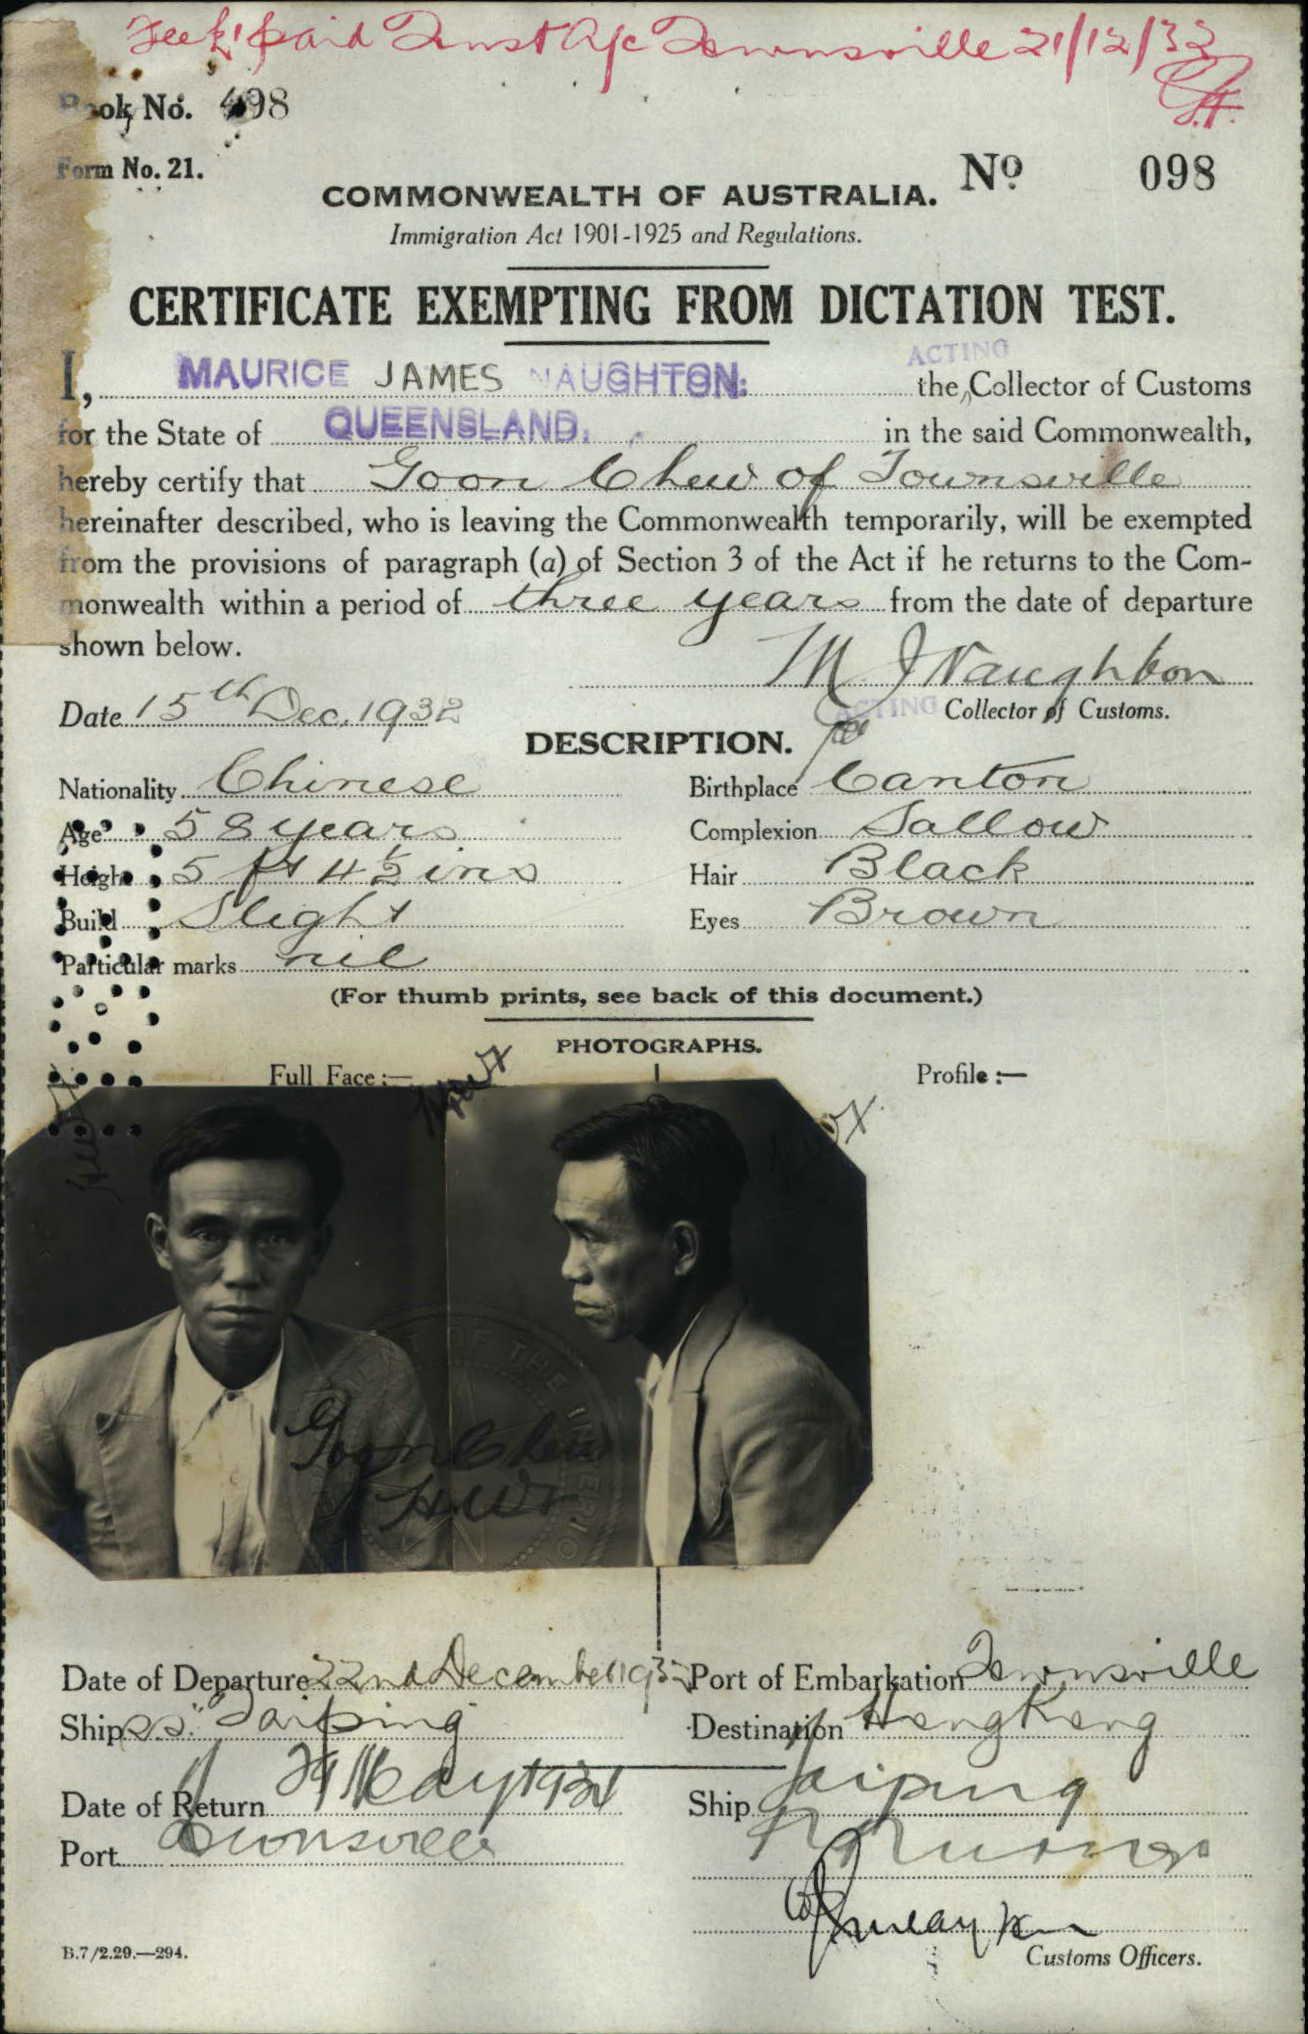 Fee £1 paid Trust A/c Townsville 21/12/32
Book No. 498
Form No. 21.
No. 098
COMMONWEALTH OF AUSTRALIA.
Immigration Act 1901-1925 and Regulations.
CERTIFICATE EXEMPTING FROM DICTATION TEST.
ACTING
I, MAURICE JAMES NAUGHTON. the Collector of Customs
for the State of QUEENSLAND. in the said Commonwealth,
hereby certify that Goon Chew of Townsville
hereinafter described, who is leaving the Commonwealth temporarily, will be exempted
from the provisions of paragraph (a) of Section 3 of the Act if he returns to the Com-
monwealth within a period of three years from the date of departure
shown below.
M J Naughton
Date 15th Dec. 1932
ACTING Collector of Customs.
DESCRIPTION.
Nationality Chinese Birthplace Canton
Age 58 years Complexion Sallow
Height 5 ft 4½ ins Hair Black
Build Slight Eyes Brown
Particular marks nil
(For thumb prints, see back of this document.)
PHOTOGRAPHS.
Full Face :— Profile :—
OF THE
Goon Chew
Date of Departure 22nd December 1932 Port of Embarkation Townsville
Ship s.s. "Taiping" Destination Hong Kong
Date of Return 29 May 1934 Ship Taiping
Port Townsville
Customs Officers.
B.7/2.29.—294.